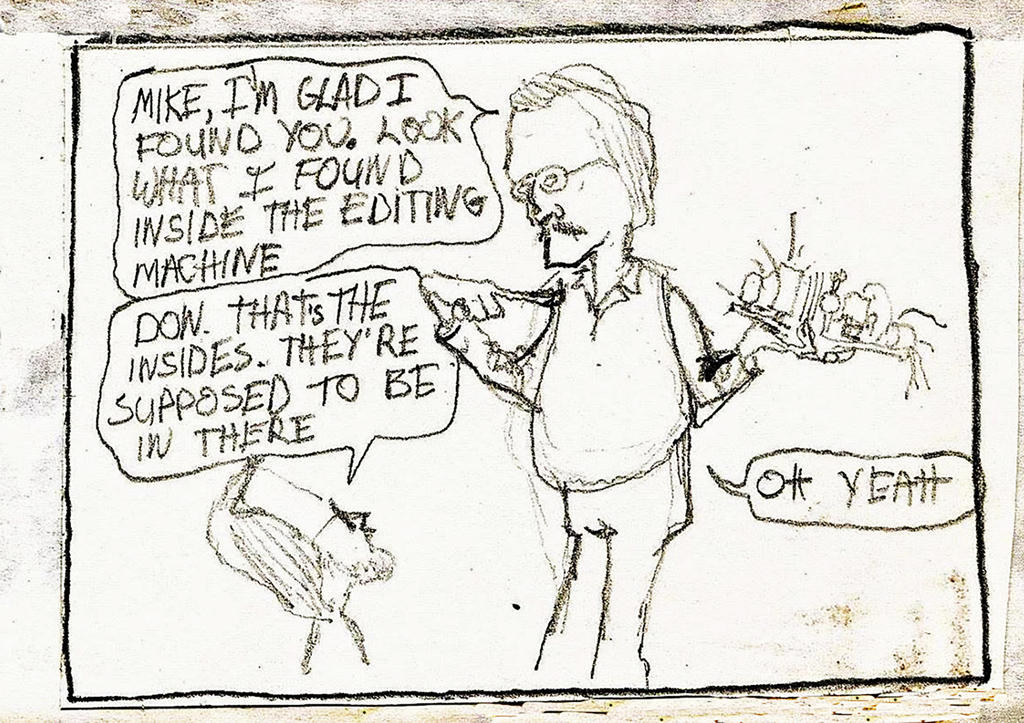 MIKE, I'M GLAD I
FOUND YOU. LOOK
WHAT I FOUND
INSIDE THE EDITING
MACHINE
DON. THAT'S THE
INSIDES. THEY'RE
SUPPOSED TO BE
IN THERE
OH YEAH